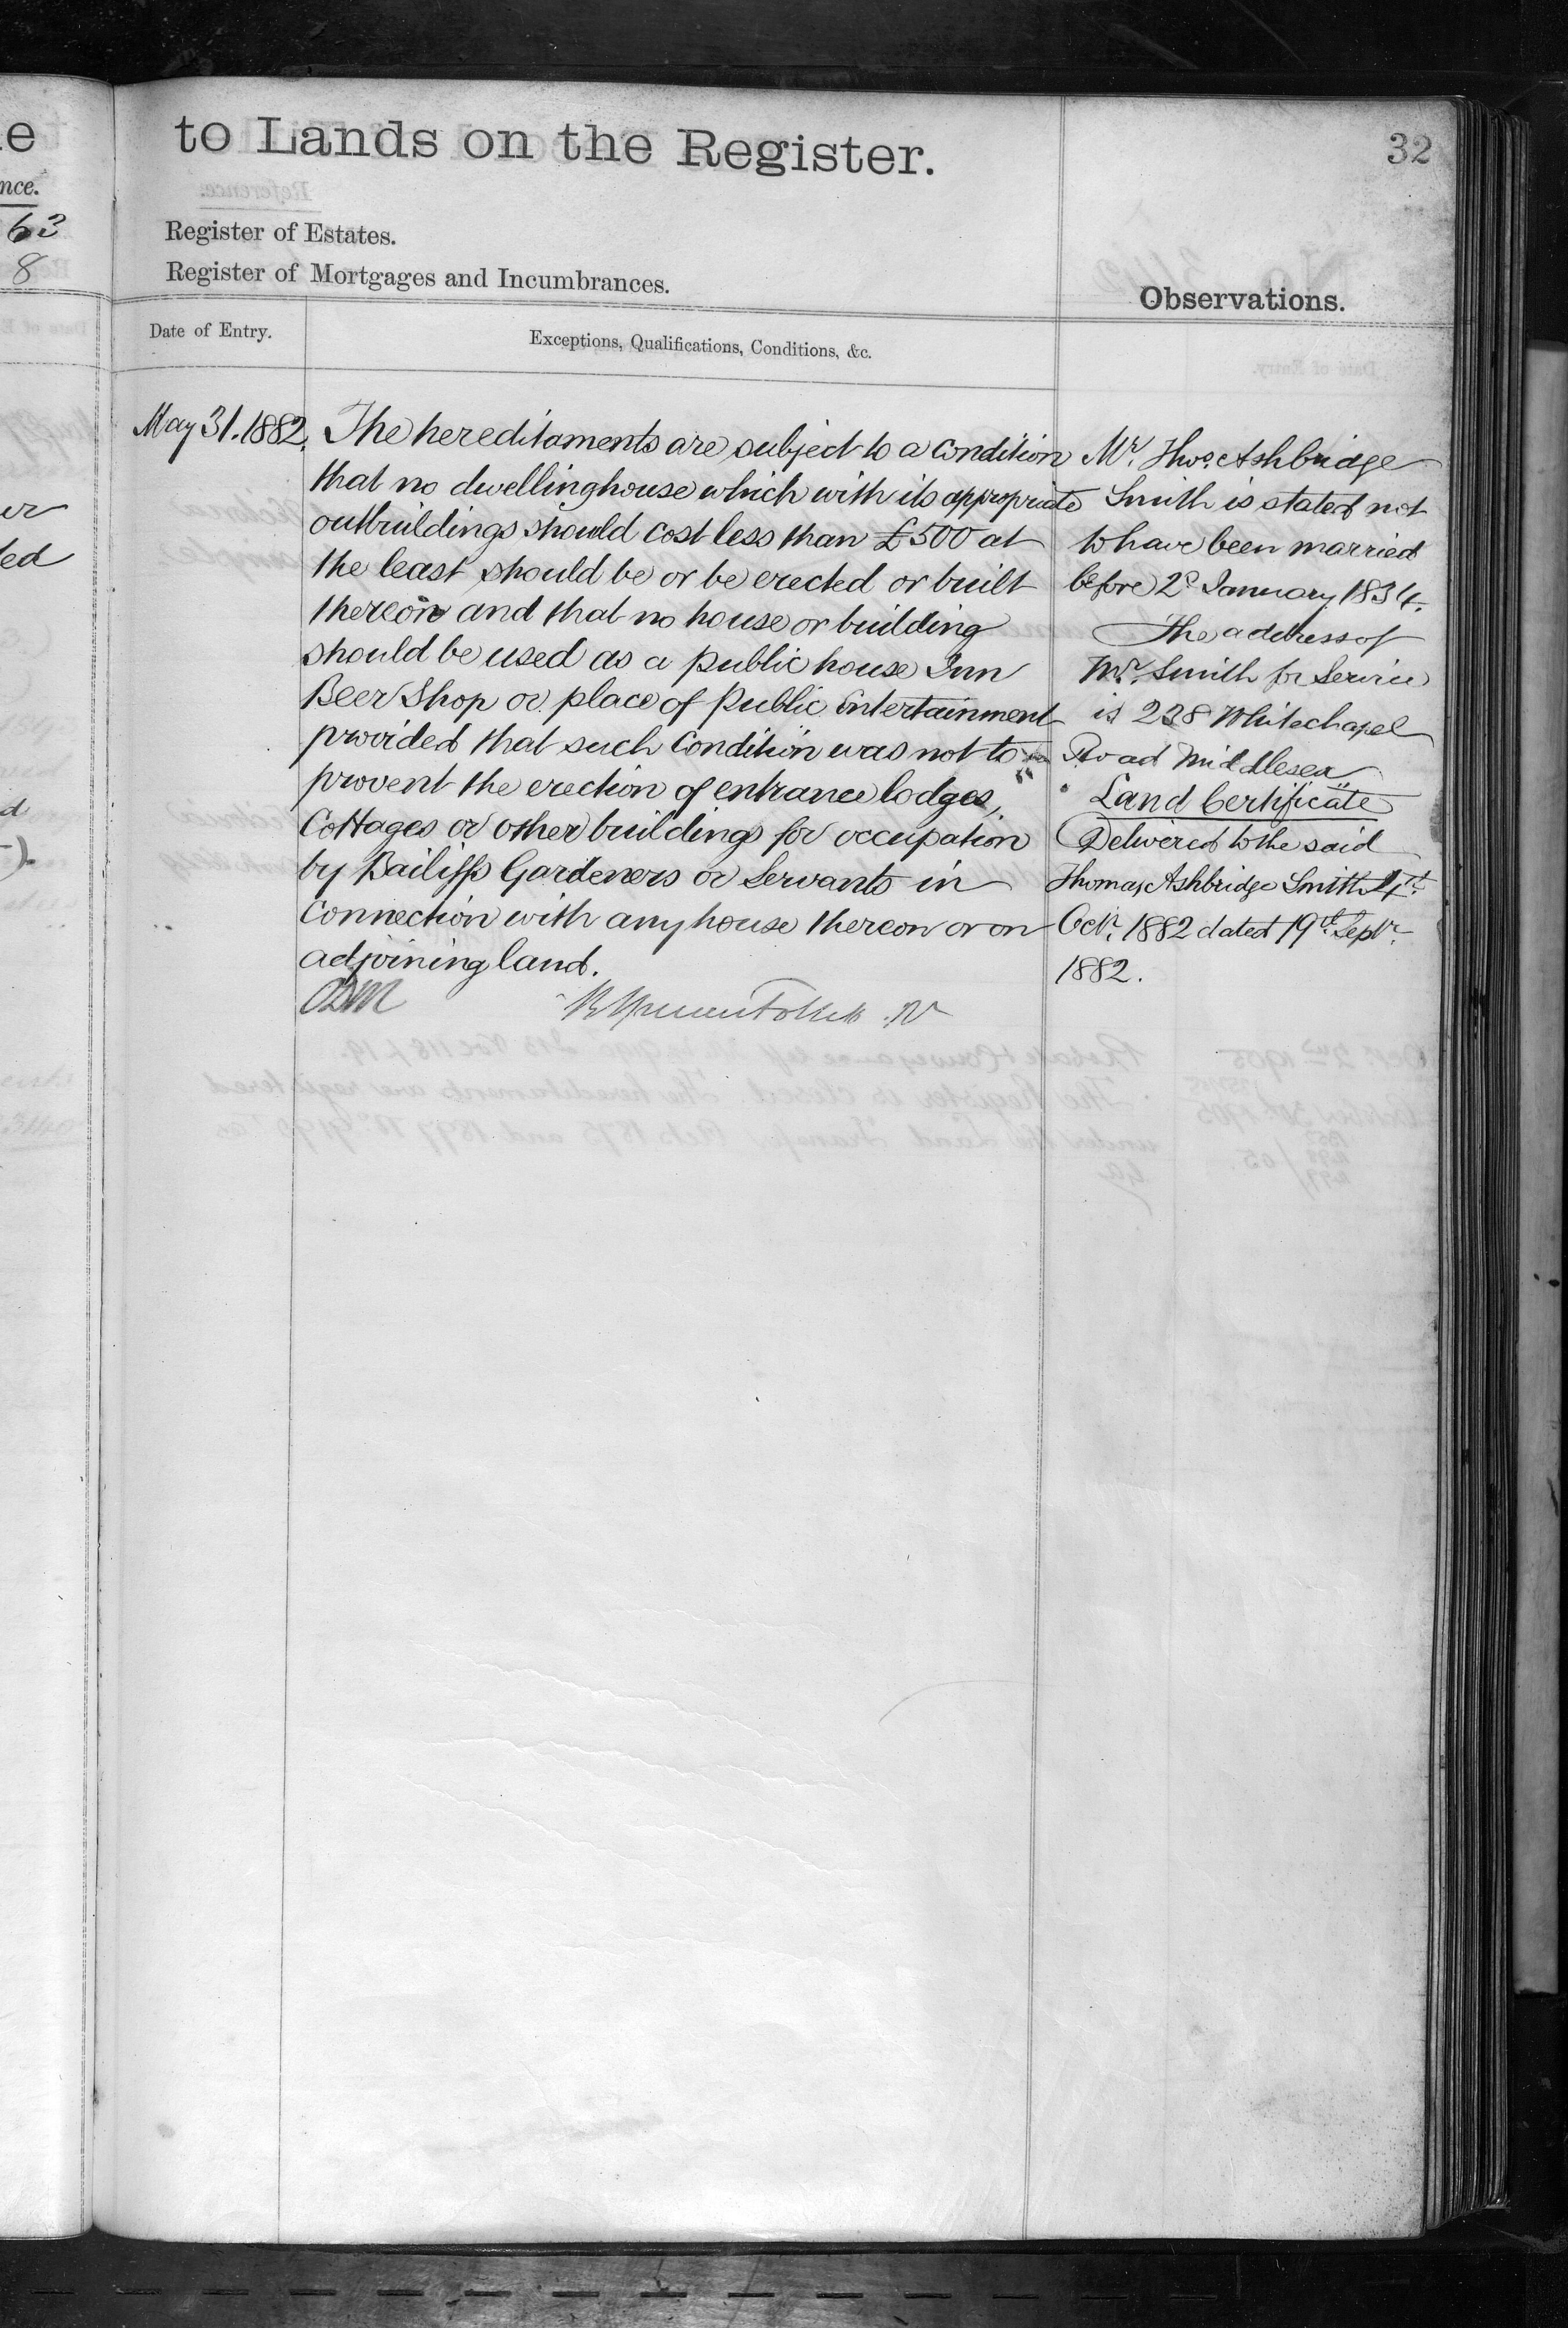 to Lands on the Register.
32
Register of Estates.
Register of Mortgages and Incumbrances.
Observations.
Date of Entry.
Exceptions, Qualifications, Conditions, &c.
May 31. 1882.
The hereditaments are subject to a condition
that no dwellinghouse which with its appropriate
outbuildings should cost less than £500 at
the least should be or be erected or built
thereon and that no house or building
should be used as a public house Inn
Beer Shop or place of Public Entertainment
provided that such Condition was not to
prevent the erection of entrance lodges,
Cottages or other buildings for occupation
by Bailiffs Gardeners or Servants in
Connection with any house thereon or on
adjoining land.
Mr. Thos. Ashbridge
Smith is stated not
to have been married
before 2d January 1834.
The address of
Mr. Smith for Service
is 238 Whitechapel
Road Middlesex
Land Certificate
Delivered to the said
Thomas Ashbridge Smith 4th
Octr. 1882 dated 19th Septr.
1882.
nce.
63
8
er
ed